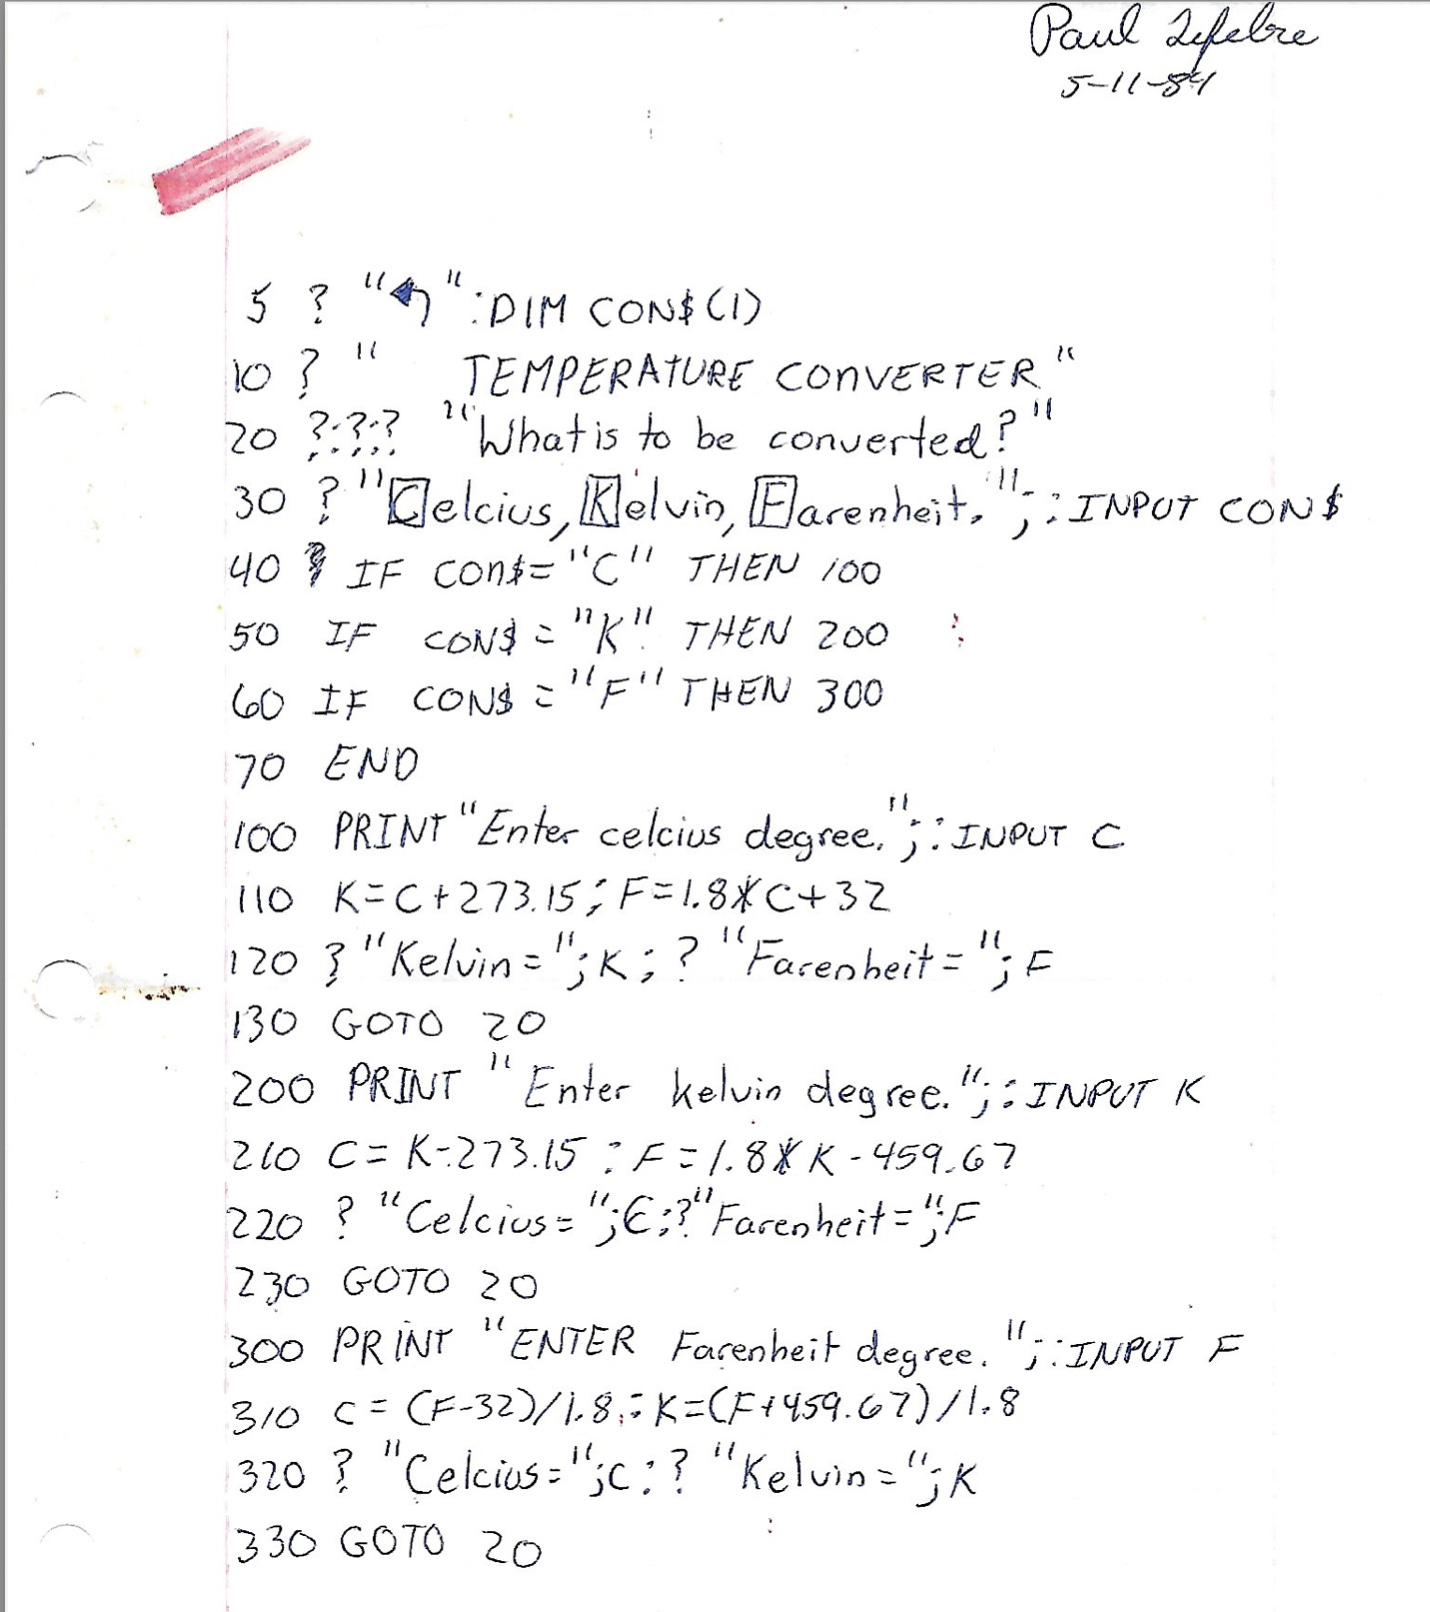 Paul Lefebre
5-11-84
5 ? "↰":DIM CON$(1)
10 ? "    TEMPERATURE CONVERTER"
20 ?:?:? "What is to be converted?"
30 ? "Celcius, Kelvin, Farenheit.";:INPUT CON$
40 IF CON$="C" THEN 100
50 IF CON$="K" THEN 200
60 IF CON$="F" THEN 300
70 END
100 PRINT "Enter celcius degree.";:INPUT C
110 K=C+273.15:F=1.8*C+32
120 ? "Kelvin=";K:? "Farenheit=";F
130 GOTO 20
200 PRINT "Enter kelvin degree.";:INPUT K
210 C=K-273.15:F=1.8*K-459.67
220 ? "Celcius=";C:?"Farenheit=";F
230 GOTO 20
300 PRINT "ENTER Farenheit degree.";:INPUT F
310 C=(F-32)/1.8:K=(F+459.67)/1.8
320 ? "Celcius=";C:? "Kelvin=";K
330 GOTO 20